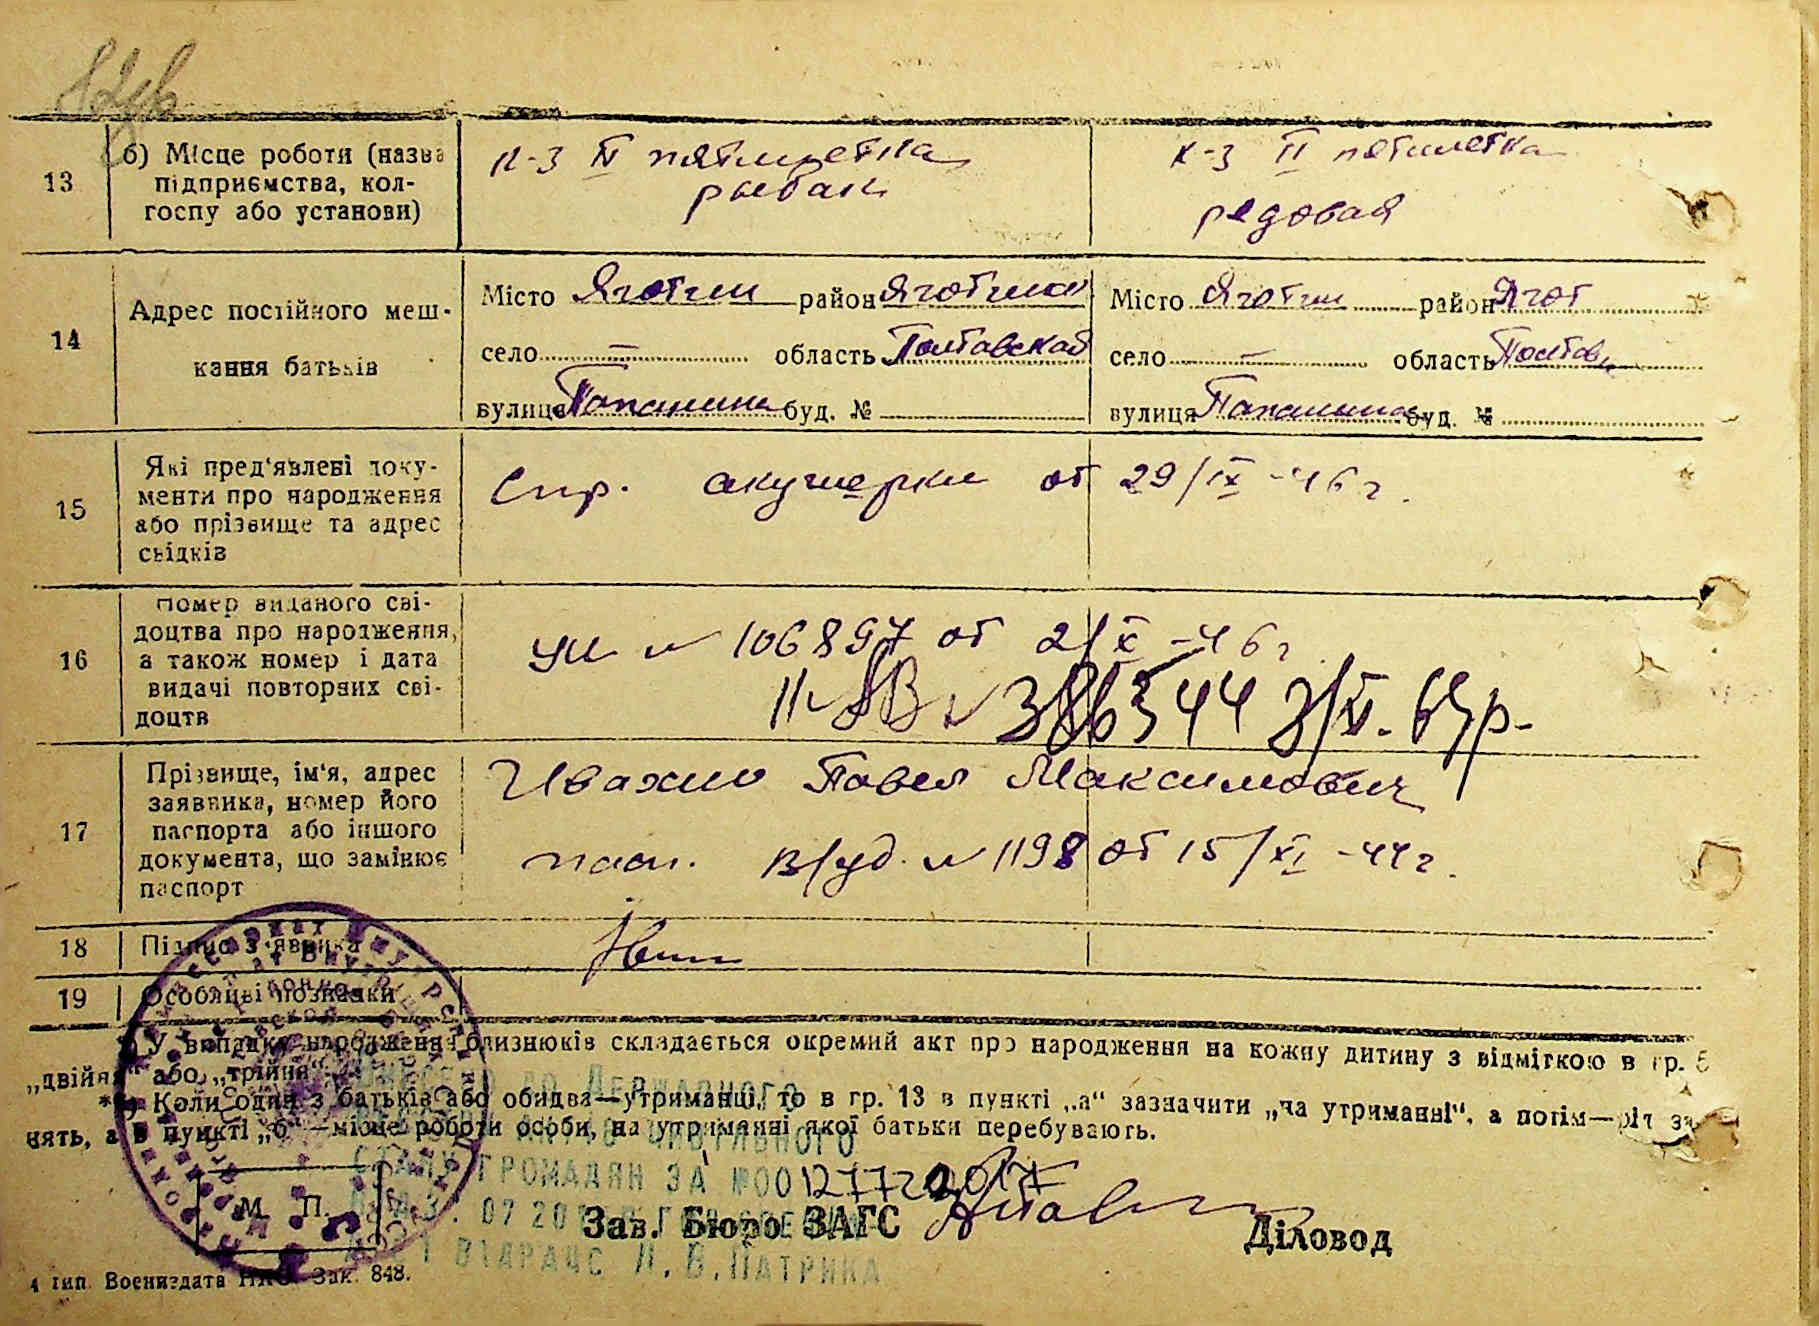 13 б) Місце роботи (назва підприємства, колгоспу або установи)
к-з II пятилетка
рыбак
к-з II пятилетка
редовая
14 Адрес постійного мешкання батьків
Місто Яготин район Яготинск
село — область Полтавская
вулиця Папанина буд. №
Місто Яготин район Ягот
село — область Полтав
вулиця Папанина буд. №
15 Які пред'явлені документи про народження або прізвище та адрес свідків
Спр. акушерки от 29/IX-46 г.
16 Номер виданого свідоцтва про народження, а також номер і дата видачі повторних свідоцтв
№ 106897 от 2/X-46 г
386544
17 Прізвище, ім'я, адрес заявника, номер його паспорта або іншого документа, що замінює паспорт
Ивахно Павел Максимович
в/уд. № 1198 от 15/XI-44 г.
18 Підпис з'явника
19 Особливі познанки
*) У випадку народження близнюків складається окремий акт про народження на кожну дитину з відміткою в гр. 5
„двійня“ або „трійня“.
**) Коли один з батьків або обидва—утриманці, то в гр. 13 в пункті „а“ зазначити „на утриманні“, а потім—рід за-
нять, а в пункті „б“—місце роботи особи, на утриманні якої батьки перебувають.
ДЕРЖАВНОГО
ЦИВІЛЬНОГО
СТАНУ ГРОМАДЯН ЗА №00127722017
М. П.
Зав. Бюро ЗАГС
Діловод
ВІДРАЦС Л.В.ПАТРИКА
4 тип. Воениздата НКО. Зак. 848.